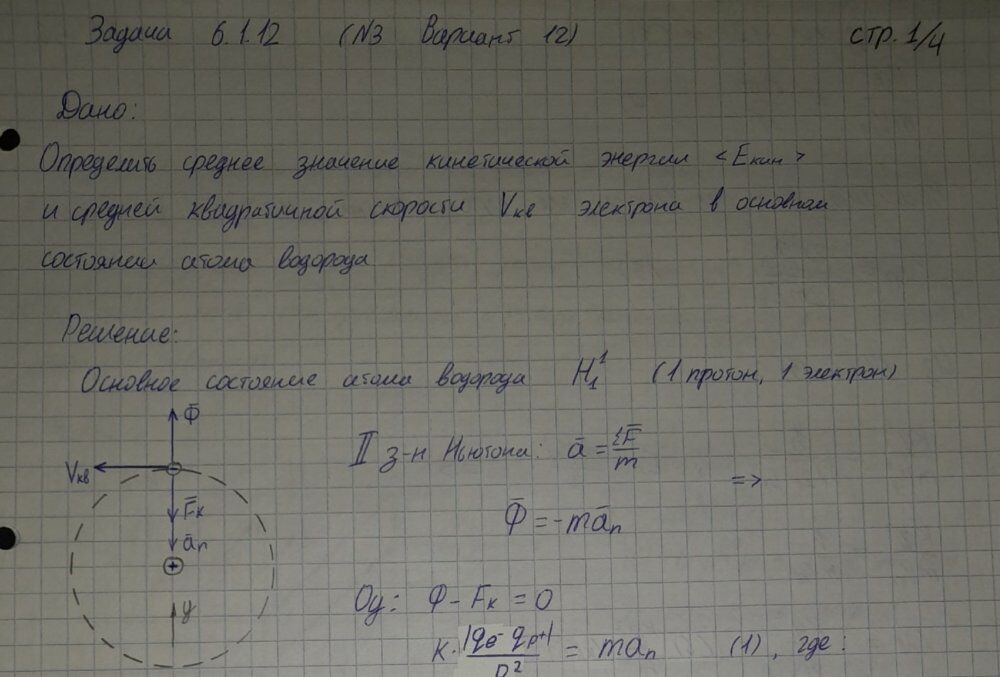 Задача 6.1.12 (N3 Вариант 12) стр. 1/4
Дано:
Определить среднее значение кинетической энергии <Eкин>
и средней квадратичной скорости Vкв электрона в основном
состоянии атома водорода
Решение:
Основное состояние атома водорода H₁¹ (1 протон, 1 электрон)
Φ̄
Vкв
F̄к
āп
+
y
II з-н Ньютона: ā = ΣF̄/m =>
Φ̄ = -māп
Oy: Φ - Fк = 0
K · |qe- qp+|/R² = maп (1), где: